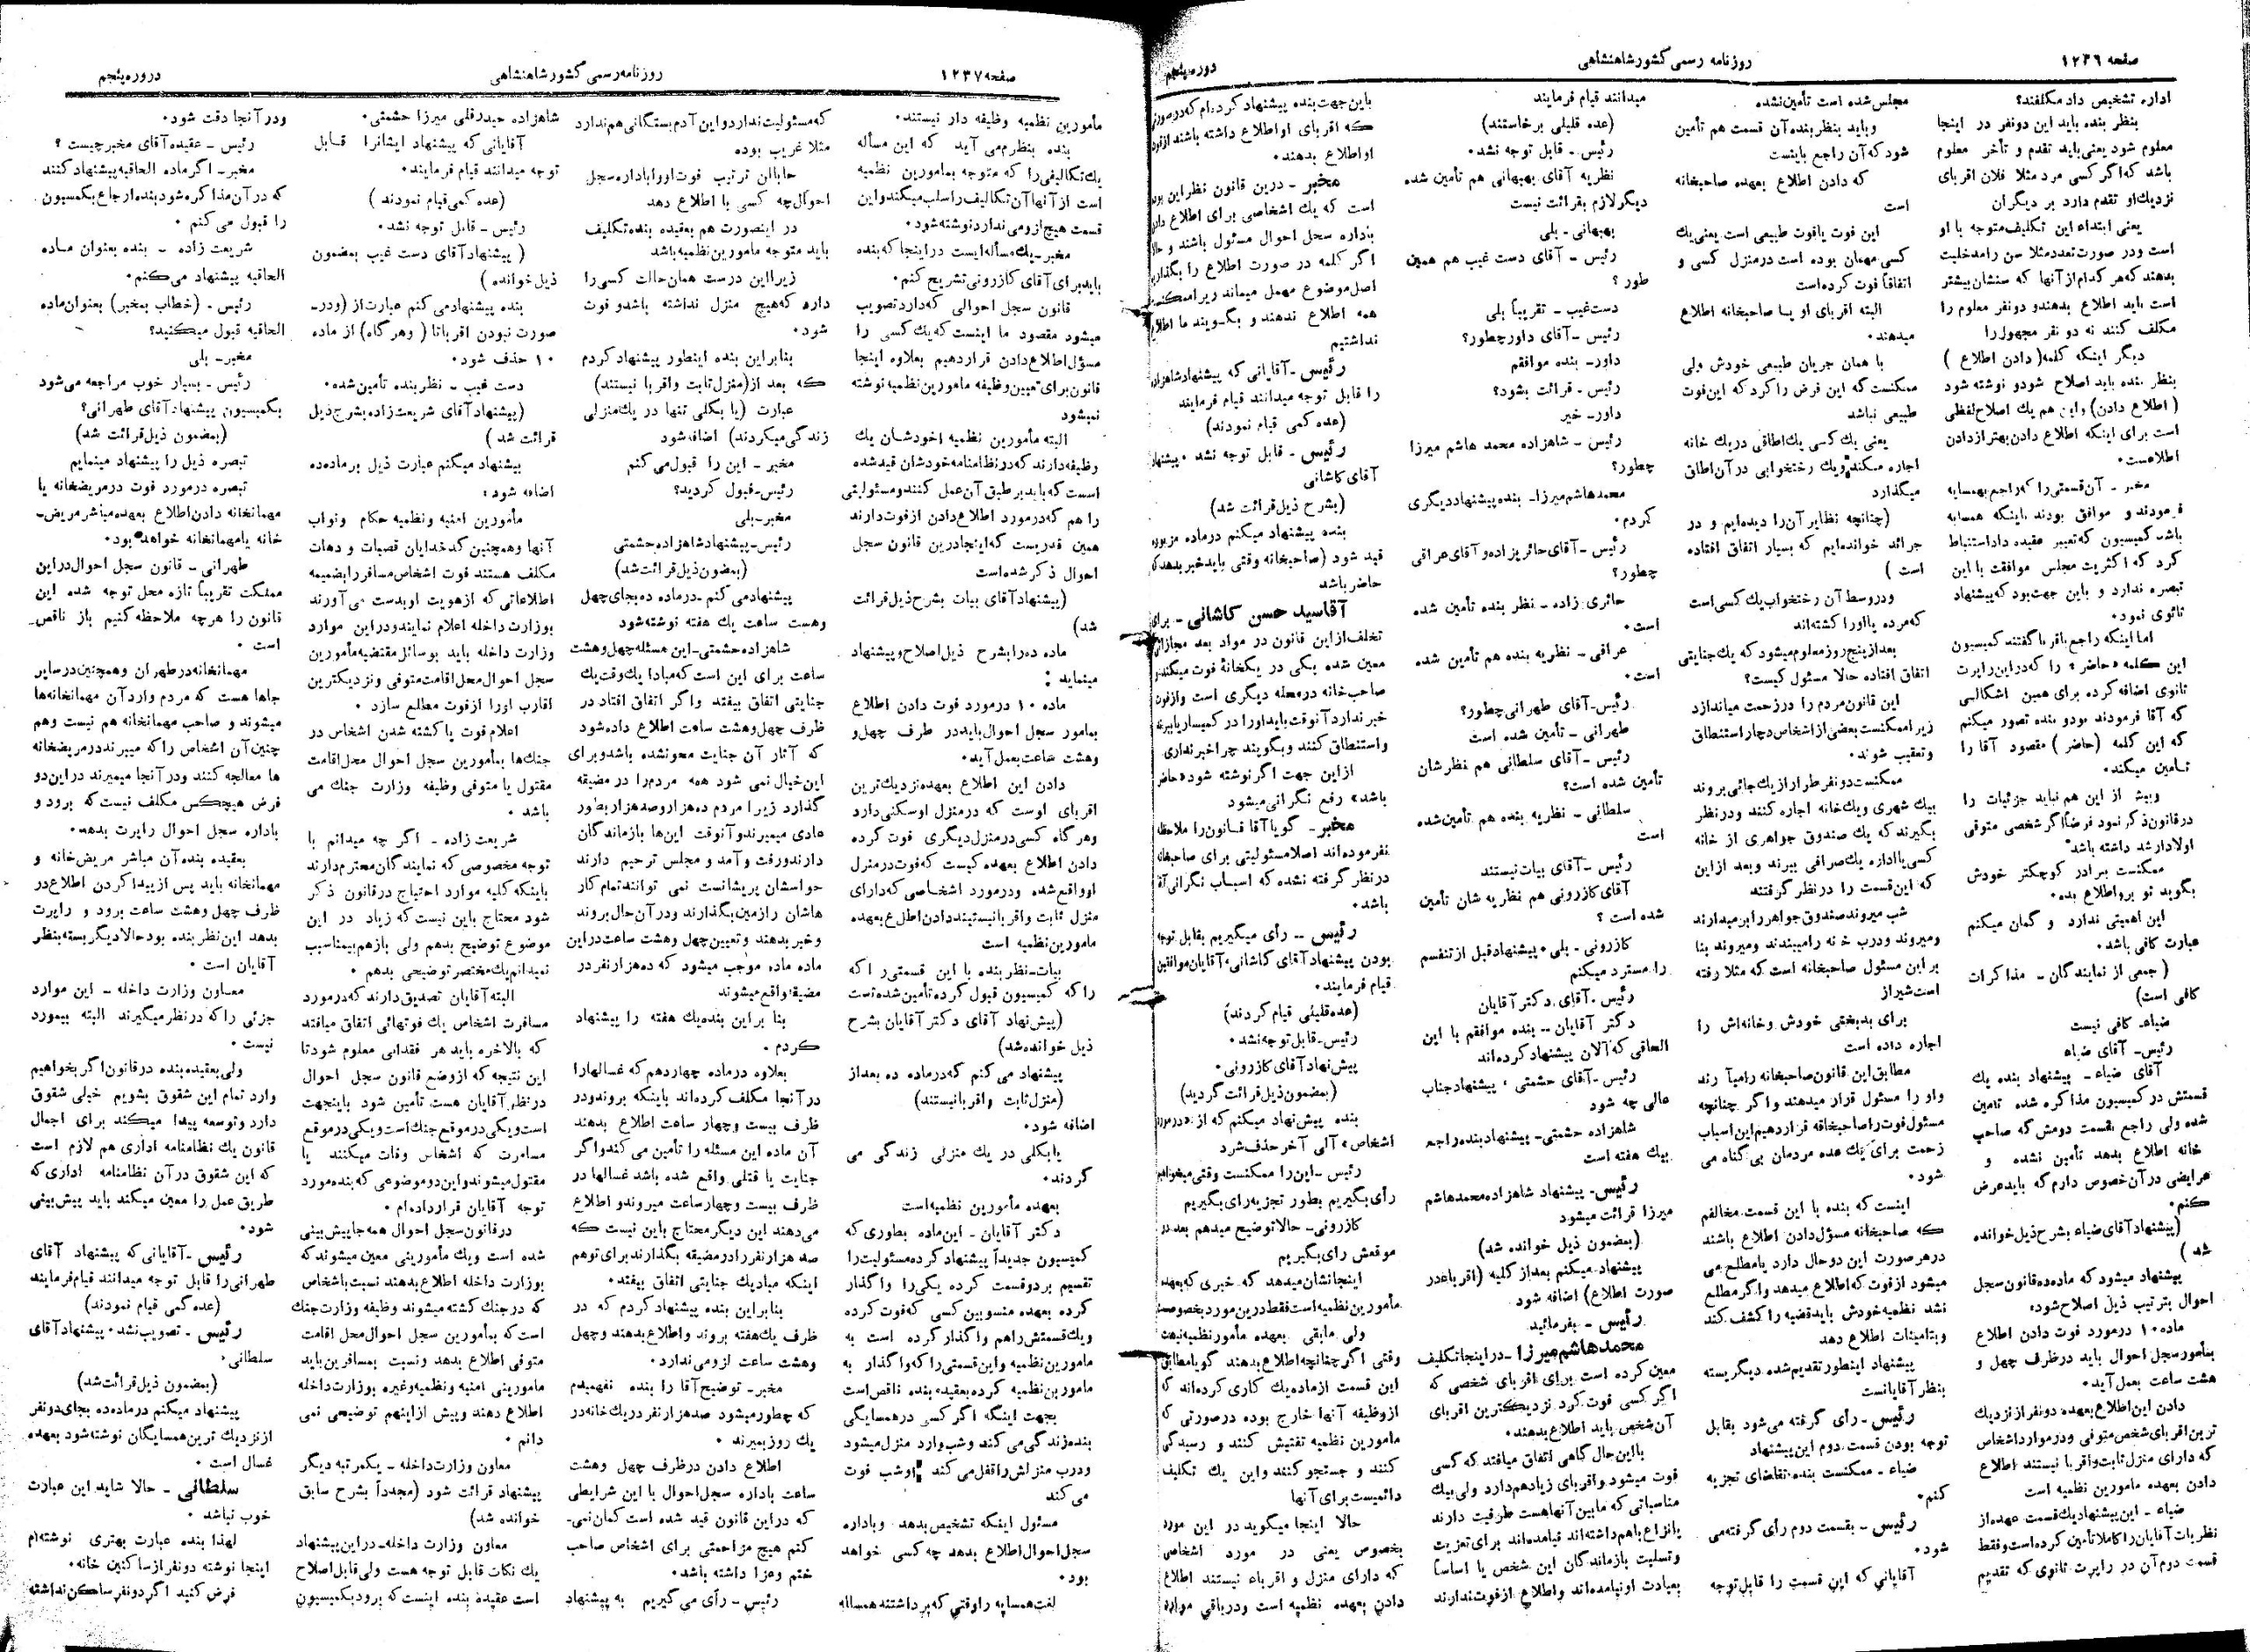 صفحه ۱۲۳۶
روزنامه رسمی کشور شاهنشاهی
دوره پنجم
اداره تشخیص داد مکلفند؟
بنظر بنده باید این دونفر در اینجا
معلوم شود یعنی باید تقدم و تأخر معلوم
باشد که اگر کسی مرد مثلا فلان اقربای
نزدیك او تقدم دارد بر دیگران
یعنی ابتداء این تکلیف متوجه با او
است ودر صورت تعدد مثلا سن را مدخلیت
بدهند که هر کدام از آنها که سنشان بیشتر
است باید اطلاع بدهند و دونفر معلوم را
مکلف کنند نه دو نفر مجهول را
دیگر اینکه کلمه (دادن اطلاع)
بنظر بنده باید اصلاح شود و نوشته شود
(اطلاع دادن) و این هم یك اصلاح لفظی
است برای اینکه اطلاع دادن بهتر از دادن
اطلاعست۰
مخبر ـ آن قسمتی را که راجع بهمسایه
فرمودند و موافق بودند باینکه همسایه
باشد کمیسیون که تغییر عقیده داد استنباط
کرد که اکثریت مجلس موافقت با این
تبصره ندارد و باین جهت بود که پیشنهاد
ثانوی نمود۰
اما اینکه راجع باقربا گفتند کمیسیون
این کلمه «حاضر» را که در این راپرت
ثانوی اضافه کرده برای همین اشکالی
که آقا فرمودند بود و بنده تصور میکنم
که این کلمه (حاضر) مقصود آقا را
تأمین میکند۰
وبیش از این هم نباید جزئیات را
در قانون ذکر نمود فرضاً اگر شخصی متوفی
اولاد ارشد داشته باشد
ممکنست برادر کوچکتر خودش
بگوید تو برو اطلاع بده۰
این اهمیتی ندارد و گمان میکنم
عبارت کافی باشد۰
(جمعی از نمایندگان ـ مذاکرات
کافی است)
ضیاء ـ کافی نیست
رئیس ـ آقای ضیاء
آقای ضیاء ـ پیشنهاد بنده یك
قسمتش در کمیسیون مذاکره شده تأمین
شده ولی راجع بقسمت دومش که صاحب
خانه اطلاع بدهد تأمین نشده و
عرایضی در آن خصوص دارم که باید عرض
کنم۰
(پیشنهاد آقای ضیاء بشرح ذیل خوانده
شد)
پیشنهاد میشود که ماده ده قانون سجل
احوال بترتیب ذیل اصلاح شود:
ماده ۱۰ در مورد فوت دادن اطلاع
بمأمور سجل احوال باید در ظرف چهل و
هشت ساعت بعمل آید۰
دادن این اطلاع بعهده دونفر از نزدیك
ترین اقربای شخص متوفی و در موارد اشخاص
که دارای منزل ثابت و اقربا نیستند اطلاع
دادن بعهده مامورین نظمیه است
ضیاء ـ این پیشنهاد یك قسمت عمده از
نظریات آقایان را کاملا تأمین کرده است و فقط
قسمت دوم آن در راپرت ثانوی که تقدیم
مجلس شده است تأمین نشده
وباید بنظر بنده آن قسمت هم تأمین
شود که آن راجع باینست
که دادن اطلاع بعهده صاحبخانه
است
این فوت یا فوت طبیعی است یعنی یك
کسی مهمان بوده است در منزل کسی و
اتفاقاً فوت کرده است
البته اقربای او یا صاحبخانه اطلاع
میدهند۰
با همان جریان طبیعی خودش ولی
ممکنست که این فرض را کرد که این فوت
طبیعی نباشد
یعنی یك کسی یك اطاقی در یك خانه
اجاره میکند و یك رختخوابی در آن اطاق
میگذارد
(چنانچه نظایر آن را دیده ایم و در
جرائد خوانده ایم که بسیار اتفاق افتاده
است)
ودر وسط آن رختخواب یك کسی است
که مرده یا او را کشته اند
بعد از پنج روز معلوم میشود که یك جنایتی
اتفاق افتاده حالا مسئول کیست؟
این قانون مردم را در زحمت میاندازد
زیرا ممکنست بعضی از اشخاص دچار استنطاق
وتعقیب شوند۰
ممکنست دونفر طرار از یك جائی بروند
بیك شهری و یك خانه اجاره کنند و در نظر
بگیرند که یك صندوق جواهری از خانه
کسی یا اداره یك صرافی ببرند وبعد از این
که این قسمت را در نظر گرفتند
شب میروند صندوق جواهر را برمیدارند
ومیروند ودرب خانه را میبندند ومیروند بنا
بر این مسئول صاحبخانه است که مثلا رفته
است شیراز
برای بدبختی خودش و خانه اش را
اجاره داده است
مطابق این قانون صاحبخانه را میآورند
و او را مسئول قرار میدهند و اگر چنانچه
مسئول فوت را صاحبخانه قرار دهیم این اسباب
زحمت برای یك عده مردمان بی گناه می
شود۰
اینست که بنده با این قسمت مخالفم
که صاحبخانه مسؤل دادن اطلاع باشند
در هر صورت این دو حال دارد یا مطلع می
میشود از فوت که اطلاع میدهد واگر مطلع
نشد نظمیه خودش باید قضیه را کشف کند
وبتامینات اطلاع دهد
پیشنهاد اینطور تقدیم شده دیگر بسته
بنظر آقایانست
رئیس ـ رأی گرفته می شود بقابل
توجه بودن قسمت دوم این پیشنهاد
ضیاء ـ ممکنست بنده تقاضای تجزیه
کنم۰
رئیس ـ بقسمت دوم رأی گرفته می
شود۰
آقایانی که این قسمت را قابل توجه
میدانند قیام فرمایند
(عده قلیلی برخاستند)
رئیس ـ قابل توجه نشد۰
نظریه آقای بهبهانی هم تأمین شده
دیگر لازم بقرائت نیست
بهبهانی ـ بلی
رئیس ـ آقای دست غیب هم همین
طور؟
دست غیب ـ تقریباً بلی
رئیس ـ آقای داور چطور؟
داور ـ بنده موافقم
رئیس ـ قرائت بشود؟
داور ـ خیر
رئیس ـ شاهزاده محمد هاشم میرزا
چطور؟
محمد هاشم میرزا ـ بنده پیشنهاد دیگری
کردم۰
رئیس ـ آقای حائری زاده و آقای عراقی
چطور؟
حائری زاده ـ نظر بنده تأمین شده
است۰
عراقی ـ نظریه بنده هم تأمین شده
است۰
رئیس ـ آقای طهرانی چطور؟
طهرانی ـ تأمین شده است
رئیس ـ آقای سلطانی هم نظرشان
تأمین شده است؟
سلطانی ـ نظریه بنده هم تأمین شده
است
رئیس ـ آقای بیات نیستند
آقای کازرونی هم نظریه شان تأمین
شده است؟
کازرونی ـ بلی۰ پیشنهاد قبل از تنفسم
را مسترد میکنم
رئیس ـ آقای دکتر آقایان
دکتر آقایان ـ بنده موافقم با این
الحاقی که آلان پیشنهاد کرده اند
رئیس ـ آقای حشمتی، پیشنهاد جناب
عالی چه شود
شاهزاده حشمتی ـ پیشنهاد بنده راجع
بیك هفته است
رئیس ـ پیشنهاد شاهزاده محمد هاشم
میرزا قرائت میشود
(بمضمون ذیل خوانده شد)
پیشنهاد میکنم بعد از کلیه (اقرباء در
صورت اطلاع) اضافه شود
رئیس ـ بفرمائید
محمد هاشم میرزا ـ در اینجا تکلیف
معین کرده است برای اقربای شخصی که
اگر کسی فوت کرد نزدیکترین اقربای
آن شخص باید اطلاع بدهند۰
با این حال گاهی اتفاق میافتد که کسی
فوت میشود و اقربای زیاد هم دارد ولی بیك
مناسباتی که مابین آنها هست طرفیت دارند
یا نزاع باهم داشته اند نیامده اند برای تعزیت
وتسلیت بازماندگان این شخص یا اساساً
بعیادت او نیامده اند و اطلاع از فوت ندارند
باین جهت بنده پیشنهاد کرده ام که در صورتی
که اقربای او اطلاع داشته باشند از فوت
او اطلاع بدهند۰
مخبر ـ در این قانون نظر این بوده
است که یك اشخاصی برای اطلاع دادن
باداره سجل احوال مسئول باشند و حالا
اگر کلمه در صورت اطلاع را بگذاریم
اصل موضوع مهمل میماند زیرا ممکنست
همه اطلاع ندهند و بگویند ما اطلاع
نداشتیم
رئیس ـ آقایانی که پیشنهاد شاهزاده
را قابل توجه میدانند قیام فرمایند
(عده کمی قیام نمودند)
رئیس ـ قابل توجه نشد۰ پیشنهاد
آقای کاشانی
(بشرح ذیل قرائت شد)
بنده پیشنهاد میکنم در ماده مزبوره
قید شود (صاحبخانه وقتی باید خبر بدهد که
حاضر باشد
آقا سید حسن کاشانی ـ برای
تخلف از این قانون در مواد بعد مجازات
معین شده یکی در یکخانه فوت میکند و
صاحب خانه در محله دیگری است و از فوت
خبر ندارد آنوقت باید او را در کمیساریا ببرند
واستنطاق کنند و بگویند چرا خبر نداری
از این جهت اگر نوشته شود «حاضر
باشد» رفع نگرانی میشود
مخبر ـ گویا آقا قانون را ملاحظه
نفرموده اند اصلا مسئولیتی برای صاحبخانه
در نظر گرفته نشده که اسباب نگرانی آقا
باشد۰
رئیس ـ رأی میگیریم بقابل توجه
بودن پیشنهاد آقای کاشانی، آقایان موافقین
قیام فرمایند۰
(عده قلیلی قیام کردند)
رئیس ـ قابل توجه نشد۰
پیش نهاد آقای کازرونی۰
(بمضمون ذیل قرائت گردید)
بنده پیش نهاد میکنم که از «در مورد
اشخاص» الی آخر حذف شرد
رئیس ـ این را ممکنست وقتی میخواهیم
رأی بگیریم بطور تجزیه رأی بگیریم
کازرونی ـ حالا توضیح میدهم بعد در
موقعش رأی بگیریم
اینجا نشان میدهد که خبری که بعهده
مأمورین نظمیه است فقط در این مورد بخصوصه
ولی مابقی بعهده مأمور نظمیه نیست
وقتی اگر چنانچه اطلاع بدهند گویا مطابق
این قسمت از ماده یك کاری کرده اند که
از وظیفه آنها خارج بوده در صورتی که
مامورین نظمیه تفتیش کنند و رسیدگی
کنند و جستجو کنند و این یك تکلیف
دائمیست برای آنها
حالا اینجا میگوید در این مورد
بخصوص یعنی در مورد اشخاص
که دارای منزل و اقرباء نیستند اطلاع
دادن بعهده نظمیه است و در باقی موارد
صفحه ۱۲۳۷
روزنامه رسمی کشور شاهنشاهی
دروره پنجم
مأمورین نظمیه وظیفه دار نیستند۰
بنده بنظرم می آید که این مسأله
یك تکالیفی را که متوجه بمامورین نظمیه
است از آنها آن تکالیف را سلب میکند و این
قسمت هیچ لزومی ندارد نوشته شود۰
مخبر ـ یك مسأله ایست در اینجا که بنده
باید برای آقای کازرونی تشریح کنم۰
قانون سجل احوالی که دارد تصویب
میشود مقصود ما اینست که یك کسی را
مسؤل اطلاع دادن قرار دهیم بعلاوه اینجا
قانون برای تعیین وظیفه مامورین نظمیه نوشته
نمیشود
البته مأمورین نظمیه ا خودشان یك
وظیفه دارند که در نظامنامه خودشان قید شده
است که باید بر طبق آن عمل کنند و مسئولیتی
را هم که در مورد اطلاع دادن از فوت دارند
همین قدریست که اینجا در این قانون سجل
احوال ذکر شده است
(پیشنهاد آقای بیات بشرح ذیل قرائت
شد)
ماده ده را بشرح ذیل اصلاح و پیشنهاد
مینماید:
ماده ۱۰ در مورد فوت دادن اطلاع
بمامور سجل احوال باید در ظرف چهل و
هشت ساعت بعمل آید۰
دادن این اطلاع بعهده نزدیك ترین
اقربای اوست که در منزل او سکنی دارد
وهر گاه کسی در منزل دیگری فوت کرده
دادن اطلاع بعهده کیست که فوت در منزل
او واقع شده و در مورد اشخاصی که دارای
منزل ثابت و اقربا نیستیند دادن اطلاع بعهده
مامورین نظمیه است
بیات ـ نظر بنده با این قسمتی را که
را که کمیسیون قبول کرده تأمین شده است
(پیش نهاد آقای دکتر آقایان بشرح
ذیل خوانده شد)
پیشنهاد می کنم که در ماده ده بعد از
(منزل ثابت و اقربا نیستند)
اضافه شود۰
یا بکلی در یك منزلی زندگی می
گردند۰
بعهده مأمورین نظمیه است
دکتر آقایان ـ این ماده بطوری که
کمیسیون جدیداً پیشنهاد کرده مسئولیت را
تقسیم بر دو قسمت کرده یکی را واگذار
کرده بعهده منسوبین کسی که فوت کرده
ویك قسمتش را هم واگذار کرده است به
مامورین نظمیه و این قسمتی را که واگذار به
مامورین نظمیه کرده بعقیده بنده ناقص است
بجهت اینکه اگر کسی در همسایگی
بنده زندگی می کند و شب وارد منزل میشود
ودرب منزلش را قفل می کند و شب فوت
می کند
مسئول اینکه تشخیص بدهد و باداره
سجل احوال اطلاع بدهد چه کسی خواهد
بود۰
لفت همسایه را وقتی که برداشتند مسأله
که مسئولیت ندارد و این آدم بستگانی هم ندارد
مثلا غریب بوده
حالا آن ترتیب فوت او را باداره سجل
احوال چه کسی با اطلاع دهد
در اینصورت هم بعقیده بنده تکلیف
باید متوجه مامورین نظمیه باشد
زیرا این درست همان حالت کسی را
دارد که هیچ منزل نداشته باشد و فوت
شود۰
بنابراین بنده اینطور پیشنهاد کردم
که بعد از (منزل ثابت و اقربا نیستند)
عبارت (یا بکلی تنها در یك منزلی
زندگی میکردند) اضافه شود
مخبر ـ این را قبول می کنم
رئیس ـ قبول کردید؟
مخبر ـ بلی
رئیس ـ پیشنهاد شاهزاده حشمتی
(بمضمون ذیل قرائت شد)
پیشنهاد می کنم ـ در ماده ده بجای چهل
وهست ساعت یك هفته نوشته شود
شاهزاده حشمتی ـ این مسئله چهل و هشت
ساعت برای این است که مبادا یك وقت یك
جنایتی اتفاق بیفتد و اگر اتفاق افتاد در
ظرف چهل و هشت ساعت اطلاع داده شود
که آثار آن جنایت محو نشده باشد و برای
این خیال نمی شود همه مردم را در مضیقه
گذارد زیرا مردم ده هزار و صد هزار بطور
عادی میمیرند و آنوقت این ها بازماندگان
دارند و رفت و آمد و مجلس ترحیم دارند
حواسشان پریشانست نمی توانند تمام کار
هاشان را زمین بگذارند و در آن حال بروند
وخبر بدهند و تعیین چهل و هشت ساعت در این
ماده ماده موجب میشود که ده هزار نفر در
مضیقه واقع میشوند
بنا بر این بنده یك هفته را پیشنهاد
کردم۰
بعلاوه در ماده چهاردهم که غسالها را
در آنجا مکلف کرده اند باینکه بروند و در
ظرف بیست و چهار ساعت اطلاع بدهند
آن ماده این مسئله را تأمین می کند و اگر
جنایت یا قتلی واقع شده باشد غسالها در
ظرف بیست و چهار ساعت میروند و اطلاع
می دهند این دیگر محتاج باین نیست که
صد هزار نفر را در مضیقه بگذارند برای توهم
اینکه مبادا یك جنایتی اتفاق بیفتد۰
بنابراین بنده پیشنهاد کردم که در
ظرف یك هفته بروند و اطلاع بدهند و چهل
وهشت ساعت لزومی ندارد۰
مخبر ـ توضیح آقا را بنده نفهمیدم
که چطور میشود صد هزار نفر در یك خانه در
یك روز بمیرند۰
اطلاع دادن در ظرف چهل و هشت
ساعت باداره سجل احوال با این شرایطی
که در این قانون قید شده است گمان نمی ـ
کنم هیچ مزاحمتی برای اشخاص صاحب
ختم و عزا داشته باشد۰
رئیس ـ رأی می گیریم به پیشنهاد
شاهزاده حیدر قلی میرزا حشمتی۰
آقایانی که پیشنهاد ایشانرا قابل
توجه میدانند قیام فرمایند۰
(عده کمی قیام نمودند)
رئیس ـ قابل توجه نشد۰
(پیشنهاد آقای دست غیب بمضمون
ذیل خوانده)
بنده پیشنهاد می کنم عبارت از (ودر ـ
صورت نبودن اقربا تا (وهرگاه) از ماده
۱۰ حذف شود۰
دست غیب ـ نظر بنده تأمین شده۰
(پیشنهاد آقای شریعت زاده بشرح ذیل
قرائت شد)
پیشنهاد میکنم عبارت ذیل بر ماده ده
اضافه شود:
مأمورین امنیه و نظمیه حکام و نواب
آنها و همچنین کدخدایان قصبات و دهات
مکلف هستند فوت اشخاص مسافر را بضمیمه
اطلاعاتی که از هویت او بدست می آورند
بوزارت داخله اعلام نمایند و در این موارد
وزارت داخله باید بوسائل مقتضیه مأمورین
سجل احوال محل اقامت متوفی و نزدیکترین
اقارب او را از فوت مطلع سازد۰
اعلام فوت یا کشته شدن اشخاص در
جنك ها بمأمورین سجل احوال محل اقامت
مقتول یا متوفی وظیفه وزارت جنك می
باشد۰
شریعت زاده ـ اگر چه میدانم با
توجه مخصوصی که نمایندگان محترم دارند
باینکه کلیه موارد احتیاج در قانون ذکر
شود محتاج باین نیست که زیاد در این
موضوع توضیح بدهم ولی باز هم بیمناسب
نمیدانم یك مختصر توضیحی بدهم۰
البته آقایان تصدیق دارند که در مورد
مسافرت اشخاص یك فوتهائی اتفاق میافتد
که بالاخره باید هر فقدانی معلوم شود تا
این نتیجه که از وضع قانون سجل احوال
در نظر آقایان هست تأمین شود باینجهت
است و یکی در موقع جنك است و یکی در موقع
مسافرت که اشخاص وفات میکنند یا
مقتول میشوند و این دو موضوعی که بنده مورد
توجه آقایان قرار داده ام۰
در قانون سجل احوال همه جا پیش بینی
شده است و یك مأمورینی معین میشوند که
بوزارت داخله اطلاع بدهند نسبت باشخاص
که در جنك کشته میشوند وظیفه وزارت جنك
است که بمأمورین سجل احوال محل اقامت
متوفی اطلاع بدهد و نسبت بمسافرین باید
مامورینی امنیه و نظمیه و غیره بوزارت داخله
اطلاع دهند و بیش از اینهم توضیحی نمی
دانم۰
معاون وزارت داخله ـ یکمرتبه دیگر
پیشنهاد قرائت شود (مجدداً بشرح سابق
خوانده شد)
معاون وزارت داخله ـ در این پیشنهاد
یك نکات قابل توجه هست ولی قابل اصلاح
است عقیده بنده اینست که برود بکمیسیون
ودر آنجا دقت شود۰
رئیس ـ عقیده آقای مخبر چیست؟
مخبر ـ اگر ماده الحاقیه پیشنهاد کنند
که در آن مذاکره شود بنده ارجاع بکمیسیون
را قبول می کنم۰
شریعت زاده ـ بنده بعنوان ماده
الحاقیه پیشنهاد می کنم۰
رئیس ـ (خطاب بمخبر) بعنوان ماده
الحاقیه قبول میکنید؟
مخبر ـ بلی
رئیس ـ بسیار خوب مراجعه می شود
بکمیسیون پیشنهاد آقای طهرانی؟
(بمضمون ذیل قرائت شد)
تبصره ذیل را پیشنهاد مینمایم
تبصره در مورد فوت در مریضخانه یا
مهمانخانه دادن اطلاع بعهده مباشر مریض ـ
خانه یا مهمانخانه خواهد بود۰
طهرانی ـ قانون سجل احوال در این
مملکت تقریباً تازه محل توجه شده این
قانون را هرچه ملاحظه کنیم باز ناقص ـ
است۰
مهمانخانه در طهران وهمچنین در سایر
جاها هست که مردم وارد آن مهمانخانه ها
میشوند و صاحب مهمانخانه هم نیست و هم
چنین آن اشخاص را که میبرند در مریضخانه
ها معالجه کنند و در آنجا میمیرند در این دو
فرض هیچکس مکلف نیست که برود و
باداره سجل احوال راپرت بدهد۰
بعقیده بنده آن مباشر مریض خانه و
مهمانخانه باید پس از پیدا کردن اطلاع در
ظرف چهل و هشت ساعت برود و راپرت
بدهد این نظر بنده بود حالا دیگر بسته بنظر
آقایان است۰
معاون وزارت داخله ـ این موارد
جزئی را که در نظر میگیرند البته بیمورد
نیست۰
ولی بعقیده بنده در قانون اگر بخواهیم
وارد تمام این شقوق بشویم خیلی شقوق
دارد و توسعه پیدا میکند برای اجمال
قانون یك نظامنامه اداری هم لازم است
که این شقوق در آن نظامنامه اداری که
طریق عمل را معین میکند باید پیش بینی
شود۰
رئیس ـ آقایانی که پیشنهاد آقای
طهرانی را قابل توجه میدانند قیام فرمایند
(عده کمی قیام نمودند)
رئیس ـ تصویب نشد۰ پیشنهاد آقای
سلطانی۰
(بمضمون ذیل قرائت شد)
پیشنهاد میکنم در ماده ده بجای دو نفر
از نزدیك ترین همسایگان نوشته شود بعهده
غسال است۰
سلطانی ـ حالا شاید این عبارت
خوب نباشد۰
لهذا بنده عبارت بهتری نوشته ام
اینجا نوشته دو نفر از ساکنین خانه۰
فرض کنید اگر دو نفر ساکن نداشته